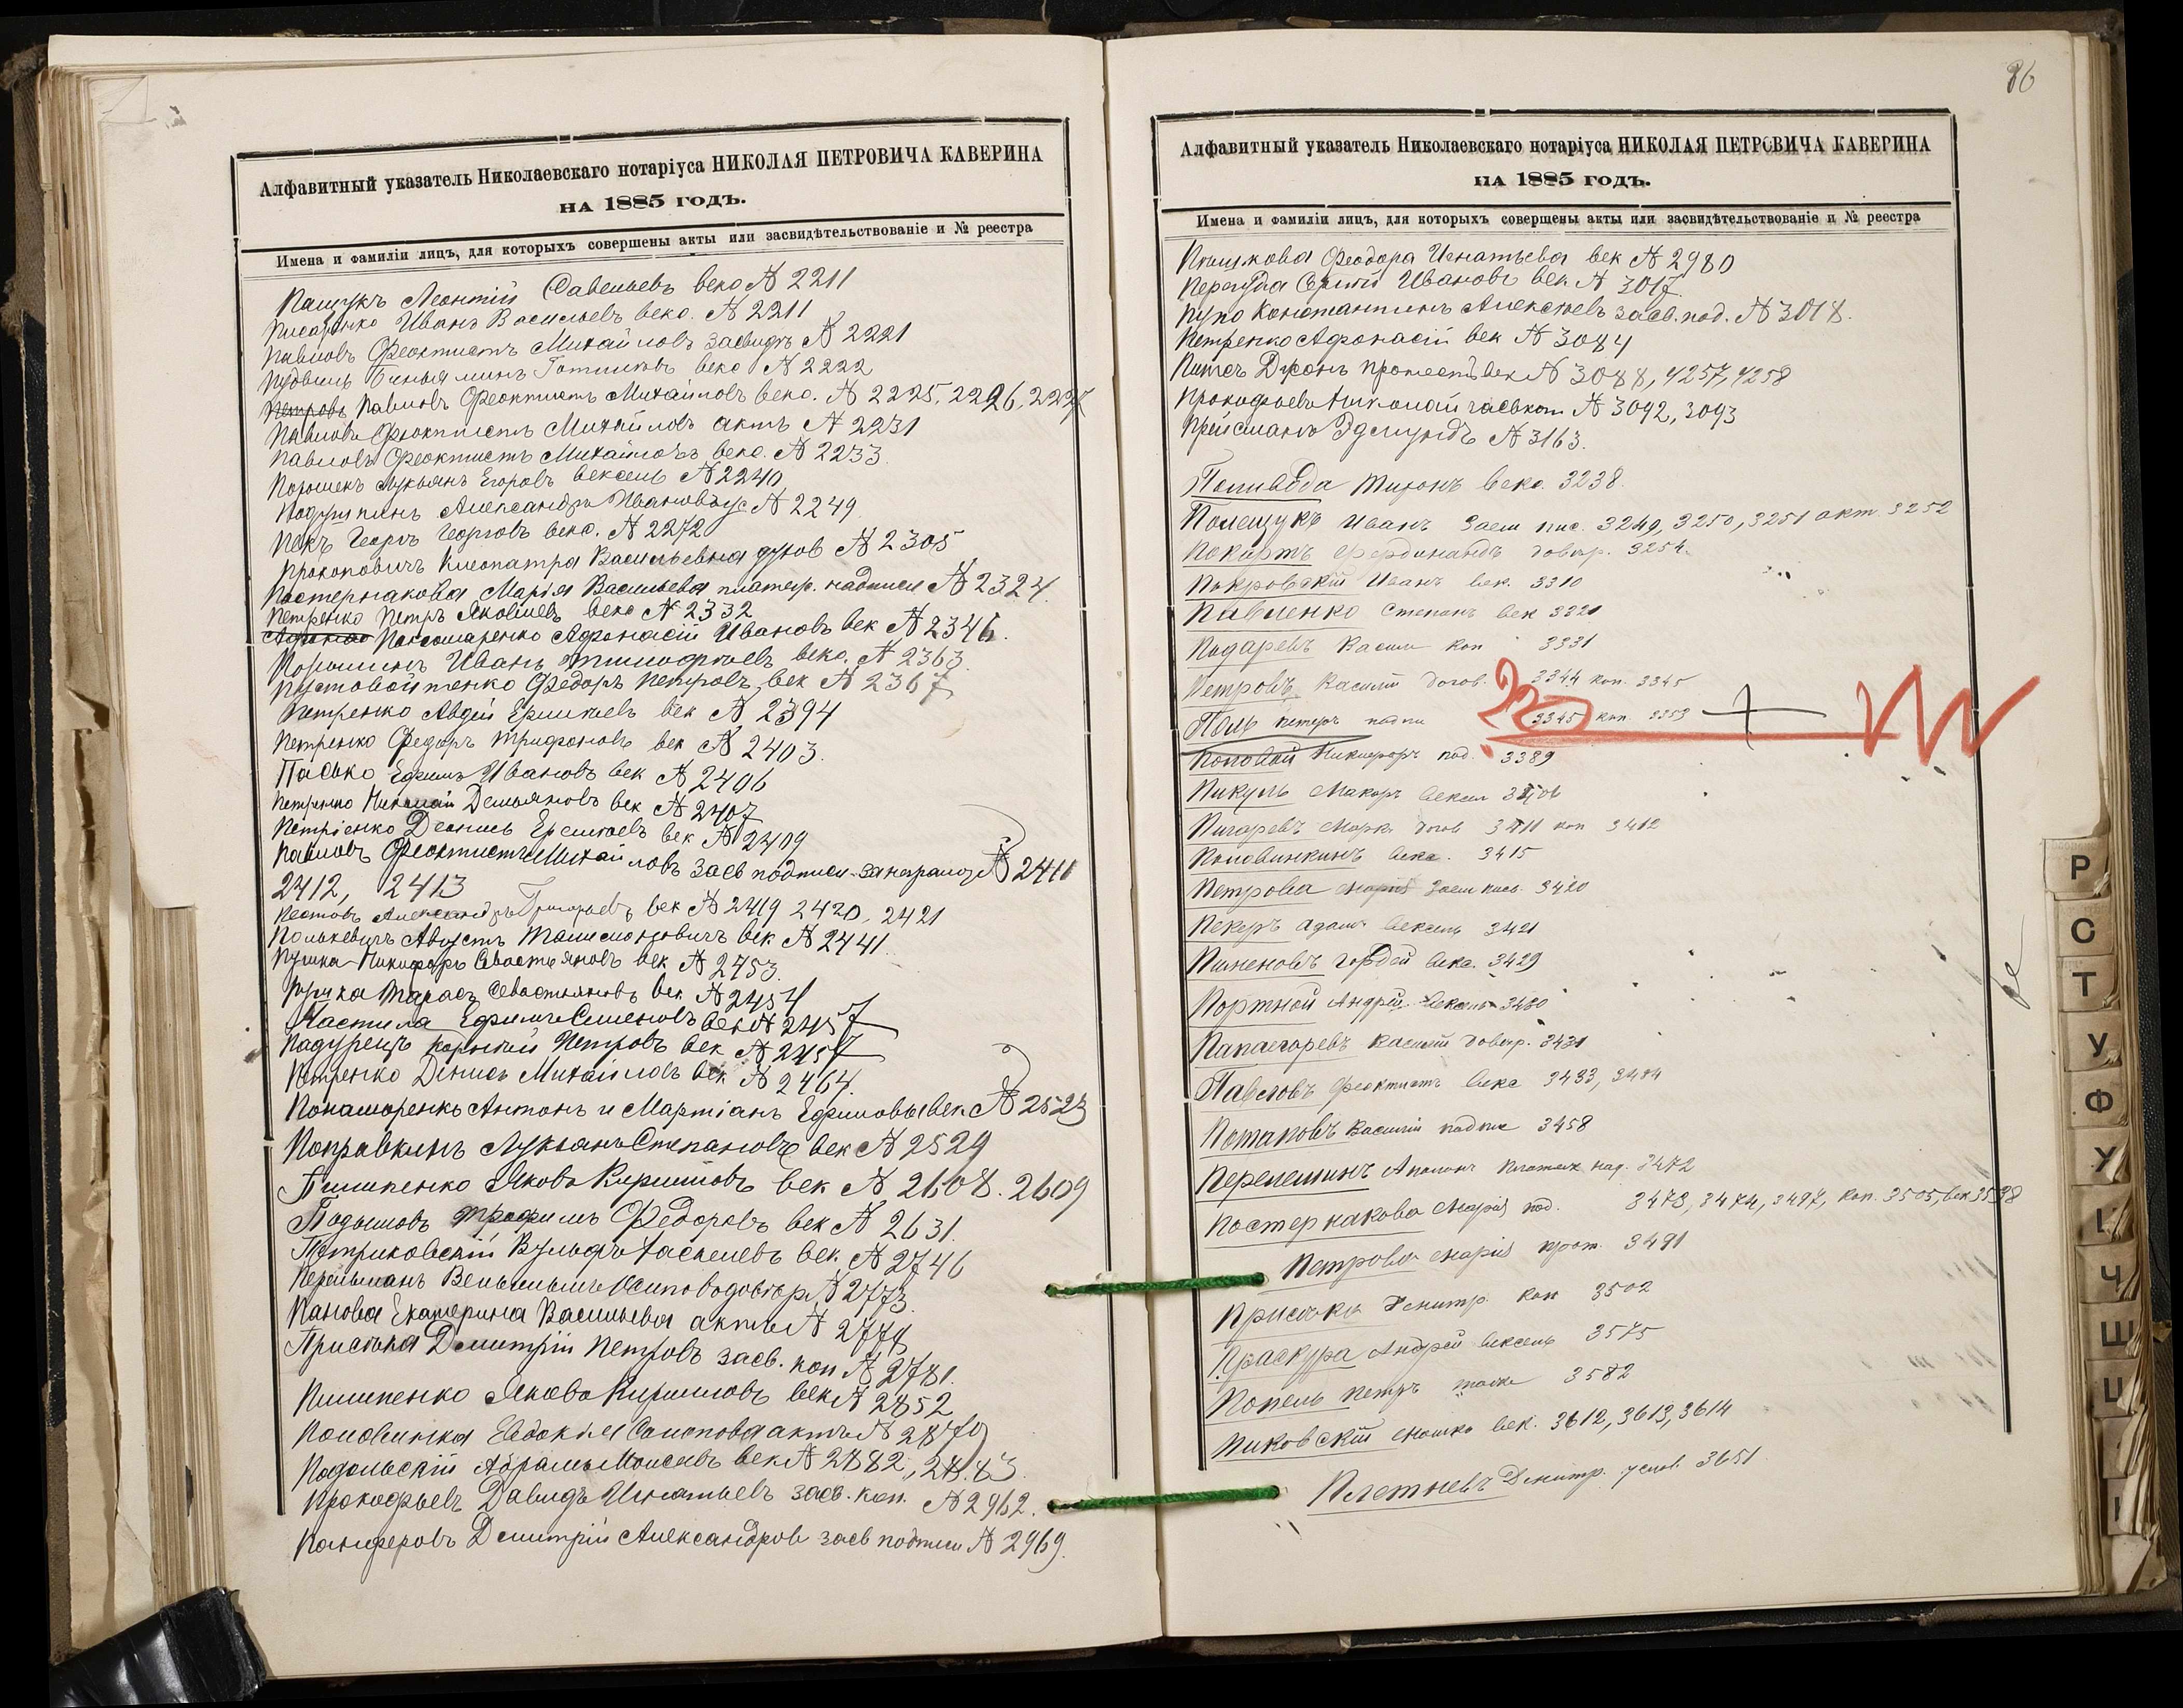 Алфавитный указатель Николаевскаго нотаріуса НИКОЛАЯ ПЕТРОВИЧА КАВЕРИНА
НА 1885 ГОДЪ.
Имена и фамиліи лицъ, для которыхъ совершены акты или засвидѣтельствованіе и № реестра
Пащукъ Леонтій Савельевъ векс № 2211
Писаренко Иванъ Васильевъ векс. № 2211
Павловъ Феоктистъ Михайловъ засвидѣ № 2221
векс № 2222
Петровъ Павловъ Феоктистъ Михайловъ векс. № 2225, 2226, 2227
Павловъ Феоктистъ Михайловъ актъ № 2231
Павловъ Феоктистъ Михайловъ векс. № 2233
Порошекъ Лукьянъ Егоровъ вексель № 2240
Подушкинъ Александръ Ивановъ № 2249
Пекъ Георгъ Георговъ векс. № 2272
Прокоповичъ Клеопатра Васильевна духов № 2305
Постернакова Марія Васильева платеж. надписи № 2324
Петренко Петръ Яковлевъ векс № 2332
Афанасій Ивановъ век № 2346.
Порошинъ Иванъ Тимофѣевъ векс. № 2363
Пустовойтенко Федоръ Петровъ век № 2367
Петренко Авдей Ермилаевъ век № 2394
Петренко Федоръ Трифоновъ век № 2403.
Пасько Ефимъ Ивановъ век № 2406
Петренко Николай Демьяновъ век № 2407
Петріенко Деонисъ век № 2409
Павловъ Феоктистъ Михайловъ засв подписи за неграмот № 2411
2412, 2413
Пестовъ Александръ Григорьевъ век № 2419 2420, 2421
Полькевичъ Августъ век № 2441.
Пушка Никифоръ Севастьяновъ век № 2453.
Пушка Тарасъ Севастьяновъ век № 2454
Пастила Ефимъ Семеновъ век № 2457
Падурецъ Корнѣй Петровъ век № 2457
Петренко Денисъ Михайловъ век № 2464.
Понамаренко Антонъ и Мартіанъ Ефимовы век № 2523
Поправкинъ Лукьянъ Степановъ век № 2529
Пилипенко Яковъ Кириловъ век № 2608. 2609
Подымовъ Трофимъ Федоровъ век № 2631.
Петриковскій Вульфъ Хаскелевъ век. № 2746
Перельманъ Веньяминъ Осиповъ довѣр № 2773.
Панова Екатерина Васильева актъ № 2779
Присѣка Дмитрій Петровъ засв. коп № 2781.
Пилипенко Яковъ Кириловъ век № 2852
Половинка Евдокія актъ № 2870
Подольскій Абрамъ Моисеевъ век № 2882, 2883
Прокофьевъ Давидъ Игнатьевъ засв. коп. № 2962.
Панферовъ Дмитрій Александровъ засв подписи № 2969.
86
Алфавитный указатель Николаевскаго нотаріуса НИКОЛАЯ ПЕТРОВИЧА КАВЕРИНА
НА 1885 ГОДЪ.
Имена и фамиліи лицъ, для которыхъ совершены акты или засвидѣтельствованіе и № реестра
Феодора Игнатьева век № 2980
Перегуда Сергѣй Ивановъ век № 3017
Пупо Константинъ Алексѣевъ засв. под. № 3018.
Петренко Афонасій век № 3084
Питсъ Джонъ протестъ век № 3088, 4257, 4258
Прокофьевъ Николай засв коп № 3092, 3093
Прейсманъ Эдмундъ № 3163.
Поливода Тихонъ векс. 3238.
Полещукъ Иванъ Заем пис. 3249, 3250, 3251 акт 3252
Покортъ Фердинандъ довѣр. 3254.
Покровскій Иванъ век. 3310
Павленко Степанъ век 3321
Пударевъ Васил коп 3331
Петровъ Василій догов. 3344 коп. 3345
Поль Петеръ подпи 3345 коп 3353
Половой Никифоръ под. 3389
Пикуль Макаръ вексел 3406
Пигаревъ Марк. догов 3411 коп 3412
Половинкинъ векс. 3415
Петрова Марія Заем пись. 3420
Пекуръ Адамъ вексель 3421
Пименовъ Гордѣй векс. 3429
Портной Андрей вексель 3430
Папаегоревъ Василій довѣр. 3431
Павловъ Феоктистъ векс 3433, 3434
Потаповъ Василій подпис 3458
Перелешинъ Аполонъ платеж над. 3472
Постернакова Марія под. 3473, 3474, 3497, коп. 3505, век 3538
Петрова Марія прот. 3491
Присѣка Дмитр. коп 3502
Праскура Андрей вексель 3575
Попель Петръ 3582
Пиковскій Мошко век. 3612, 3613, 3614
Плетневъ Дмитр. услов. 3651
Р
С
Т
У
Ф
Х
Ц
Ч
Ш
Щ